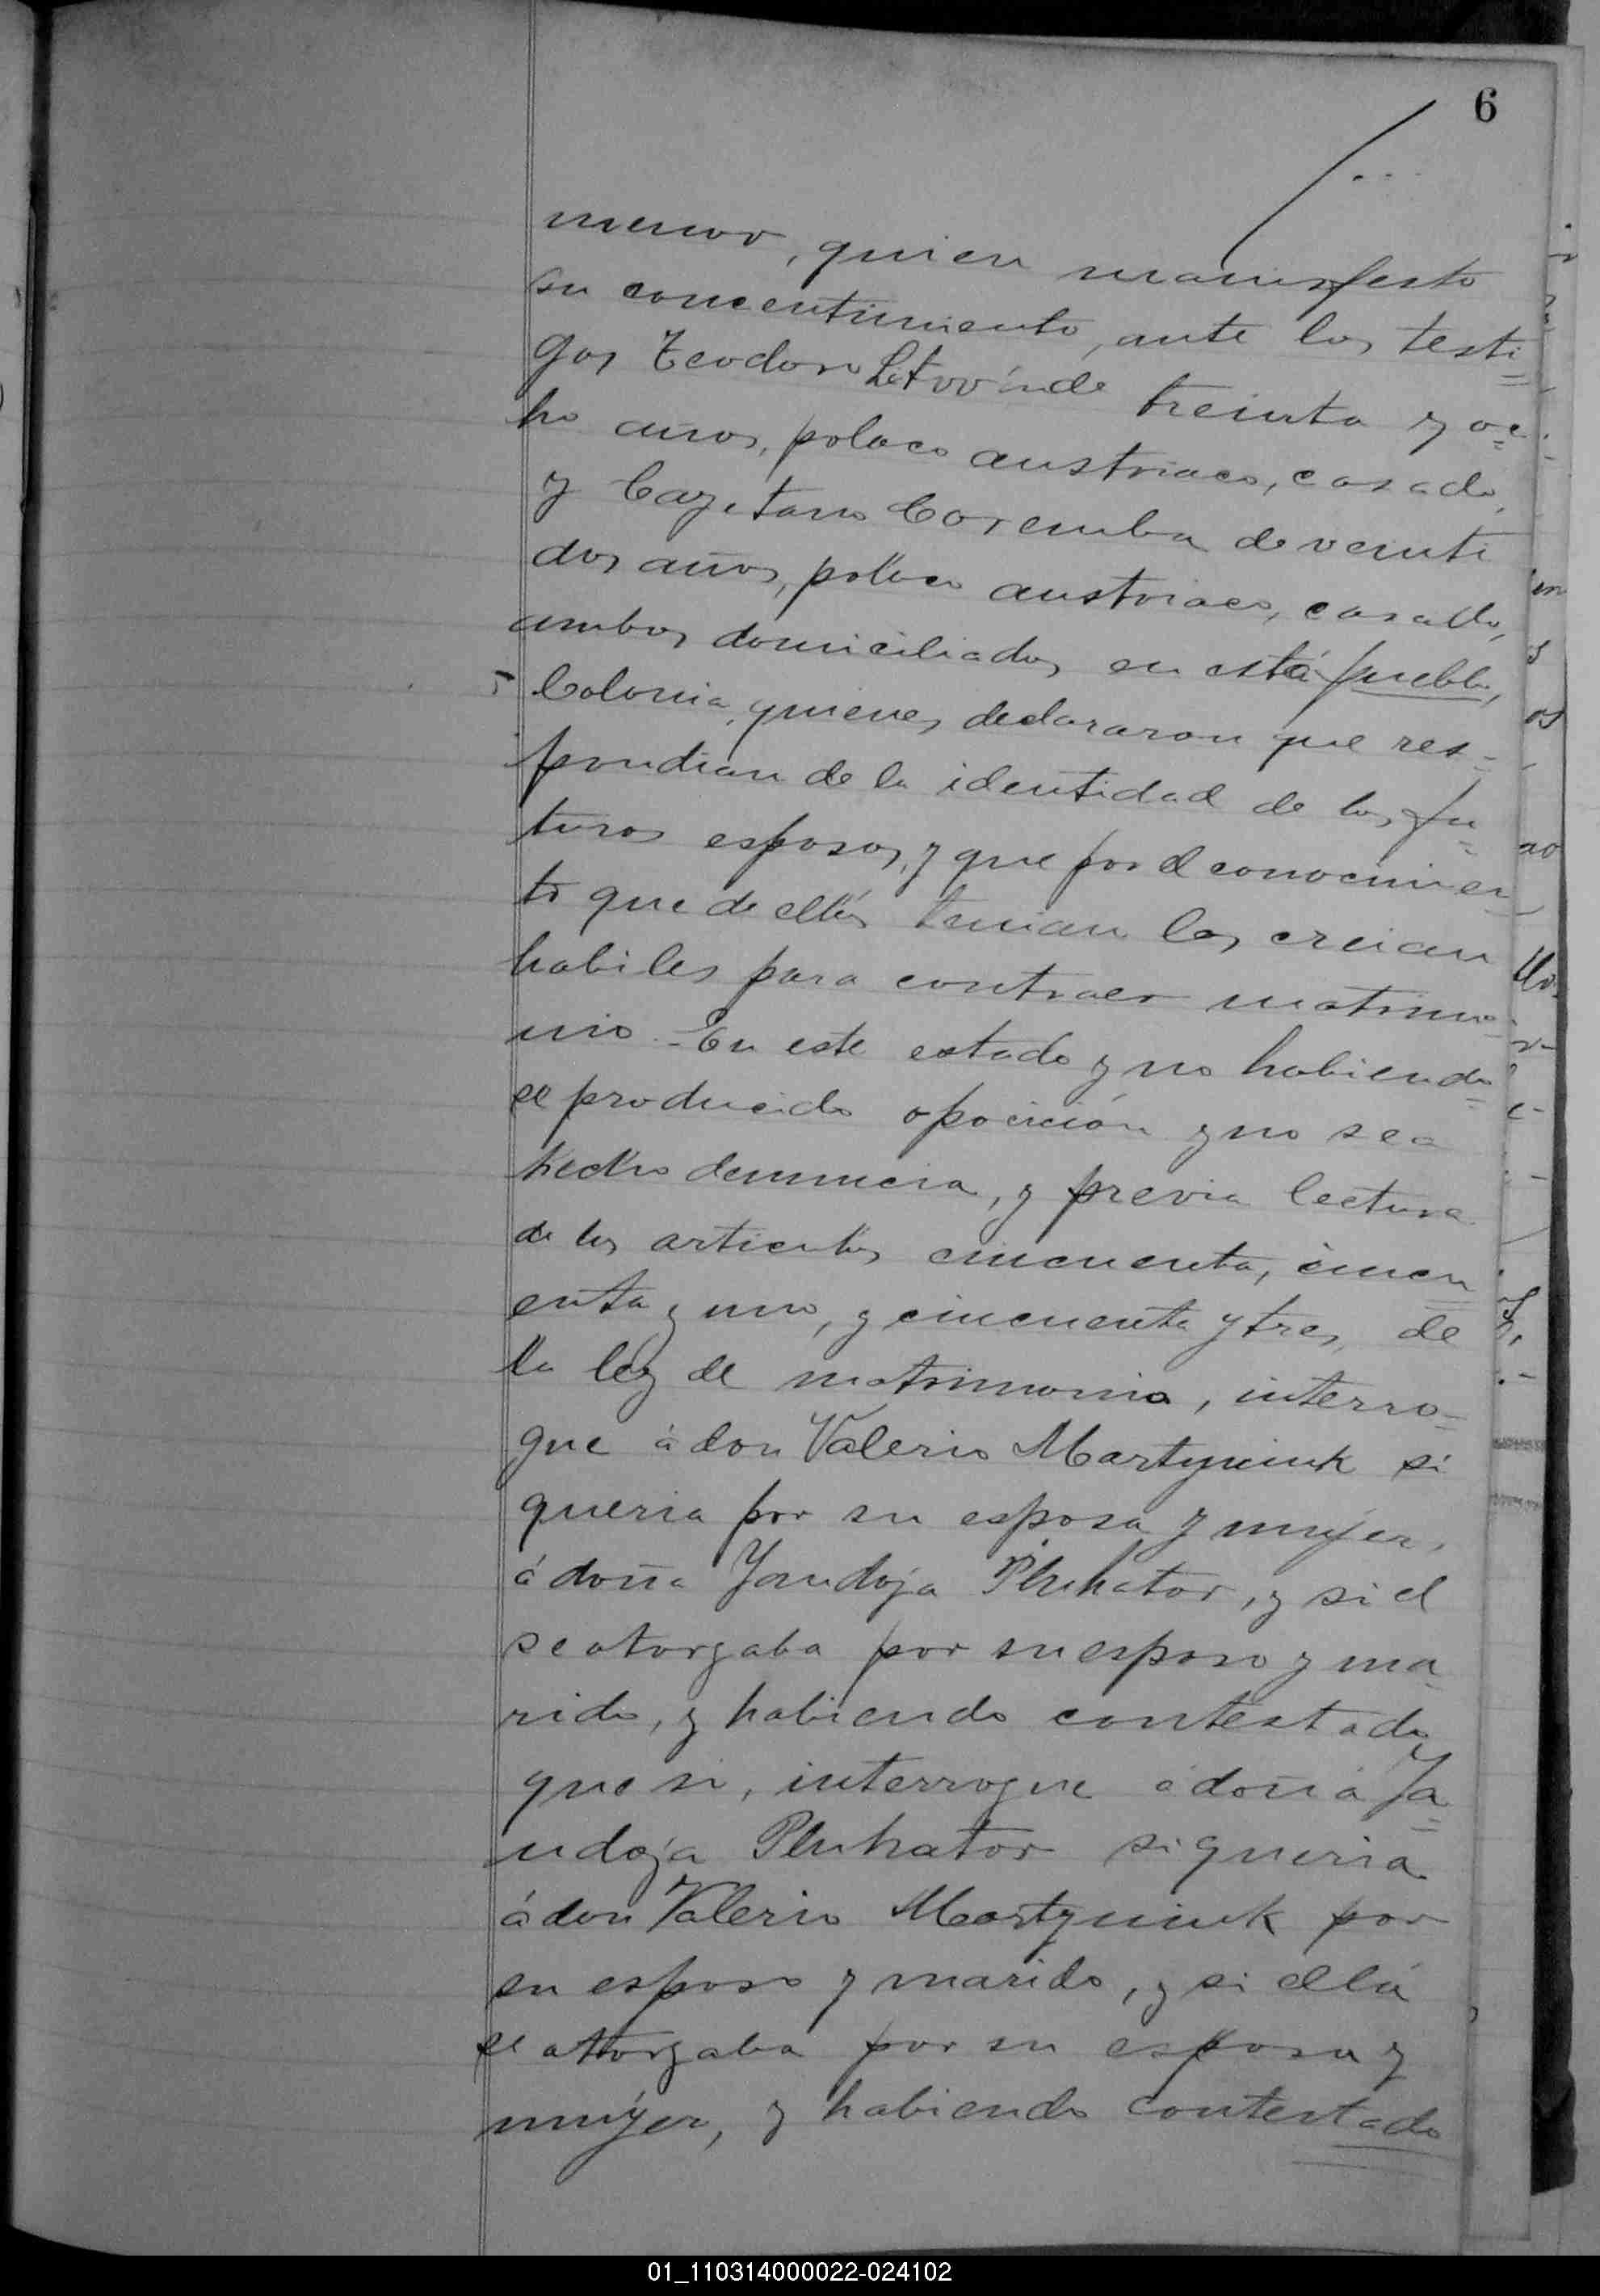 6
menor, quien manifesto
su concentimiento, ante los testi=
gos Teodoro de treinta y oc=
ho años, polaco austriaco, casado,
y Cayetano de veinti
dos años, polaco austriaco, casado,
ambos domiciliados en está pueblo,
Colonia, quienes declararon que res=
pondian de la identidad de los fu=
turos esposos, y que por el conocimien=
to que de ellos tenian los creian
habiles para contraer matrimo=
nio.- En este estado y no habiendo=
se producido oposicion y no sea
hecho denuncia, y previa lectura
de los articulos cincuenta, cincu=
enta y uno, y cincuenta y tres, de
la ley de matrimonio, interro=
gue á don Valerio Martyniuk si
queria por su esposa y mujer,
á doña Jandoja Pluhator, y si el
se otorgaba por su esposo y ma=
rido, y habiendo contestado
que si, interrogue á doñá Ja=
ndoja Pluhator si queria
á don Valerio Martyniuk por
su esposo y marido, y si ella
se otorgaba por su esposa y
mujer, y habiendo contestado
01_110314000022-024102